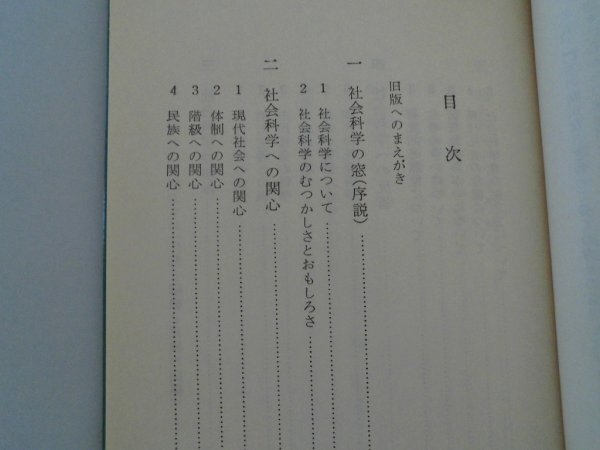 目次
旧版へのまえがき
一 社会科学の窓(序説)………………
1 社会科学について………………
2 社会科学のむつかしさとおもしろさ………………
二 社会科学への関心………………
1 現代社会への関心………………
2 体制への関心………………
3 階級への関心………………
4 民族への関心………………